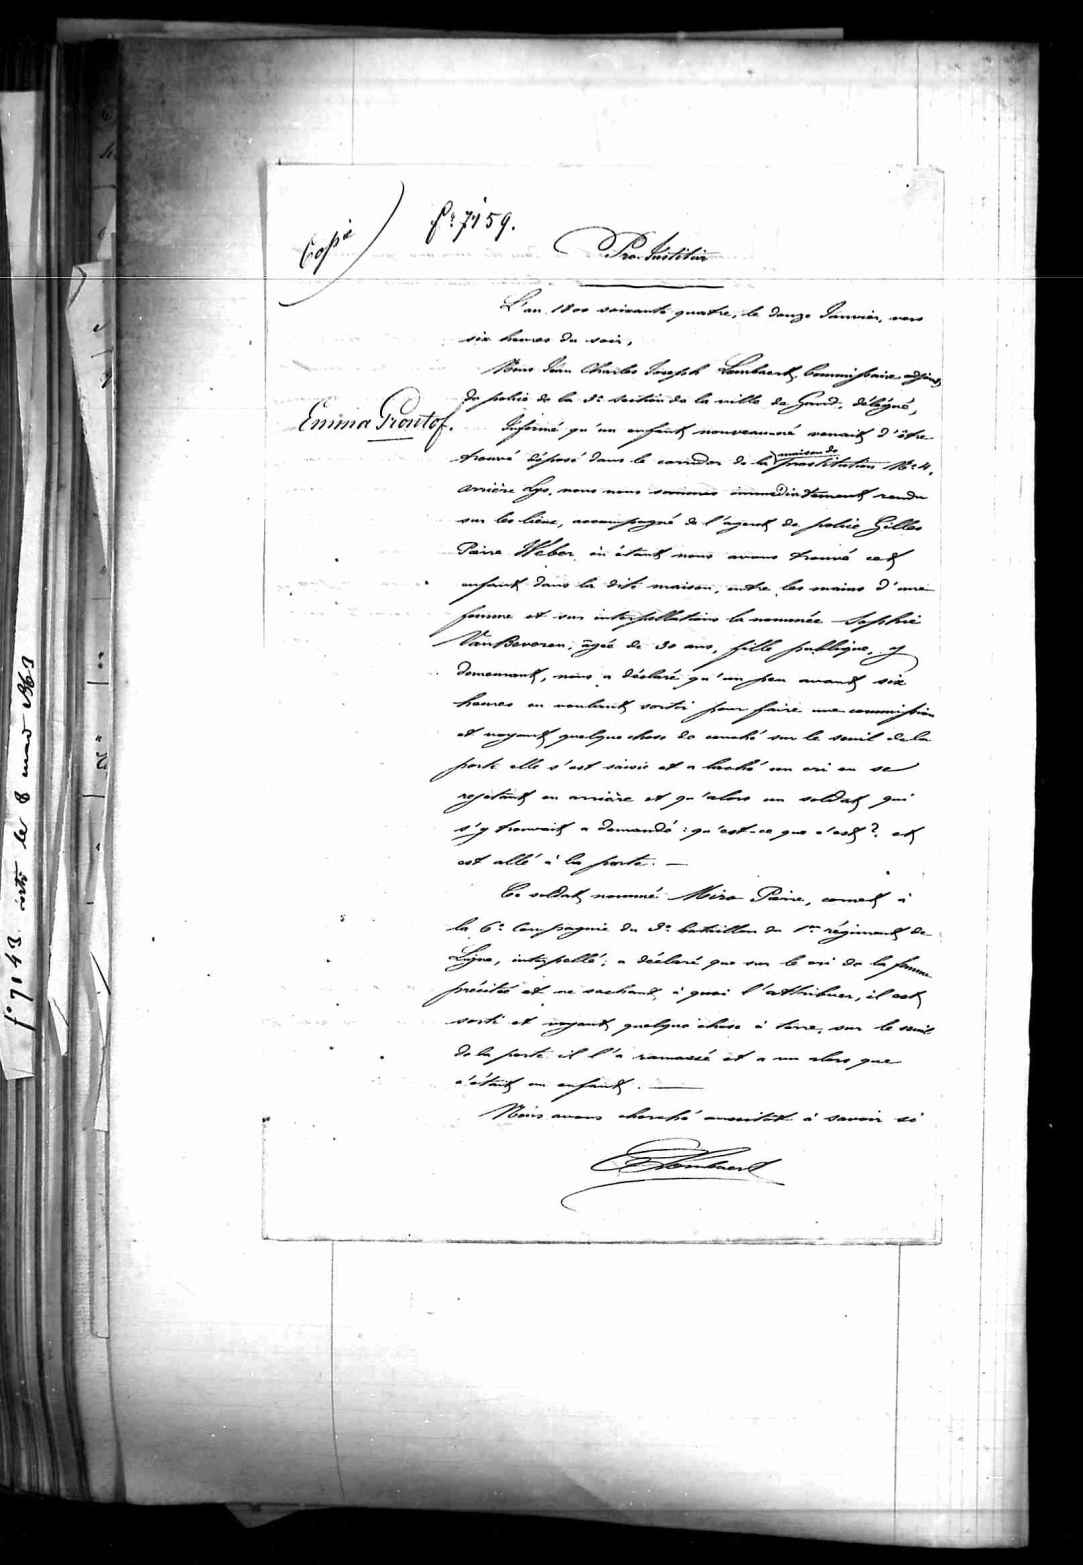 Copie
f° 7159.
Pro Justitia
L'an 1800 soixante quatre, le douze Janvier, vers
six heures du soir,
Nous Jean Charles Joseph Lombaert, Commissaire adjoint
de police de la 3e section de la ville de Gand, délégué,
Emma Prontof.
Informé qu'un enfant nouveau né venait d'être
trouvé déposé dans le corridor de la maison de prostitution No 4,
arrière Lys, nous nous sommes immédiatement rendu
sur les lieux, accompagné de l'agent de police Gilles
Pierre Weber, où étant nous avons trouvé cet
enfant dans la dite maison, entre les mains d'une
femme et sur interpellation la nommée Sophie
Van Beveren, âgée de 30 ans, fille publique, y
demeurant, nous a déclaré qu'un peu avant six
heures en voulant sortir pour faire une commission
et voyant quelque chose de couché sur le seuil de la
porte elle s'est saisie et a laché un cri en se
rejetant en arrière et qu'alors un soldat qui
s'y trouvait a demandé : qu'est-ce que c'est ? et
est allé à la porte. —
Ce soldat nommé Pierre, cornet à
la 6e Compagnie du 3e bataillon du 1er régiment de
Ligne, interpellé, a déclaré que sur le cri de la femme
précitée et ne sachant à quoi l'attribuer, il est
sorti et voyant quelque chose à terre, sur le seuil
de la porte il l'a ramassé et a vu alors que
c'était un enfant. —
Nous avons cherché aussitôt à savoir si
Lombaert
f° 7143 le 8 1863